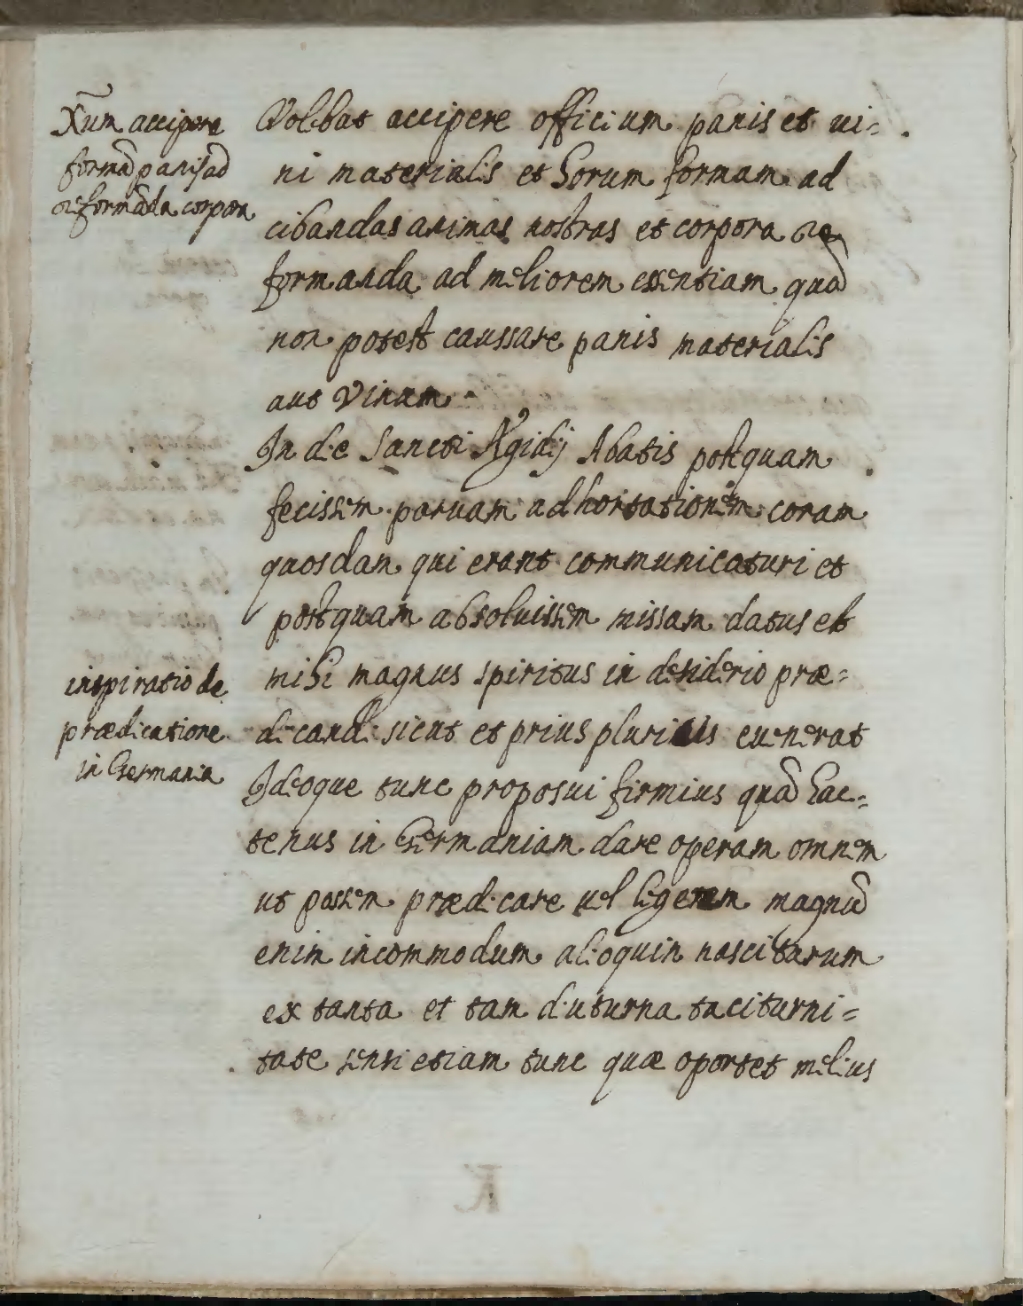 Xr̄um accipere
formā panis ad
reformāda corpora
Volebat accipere officium panis et ui=
ni materialis et horum formam ad
cibandas animas nostras et corpora re
formanda ad meliorem essentiam quā
non potest caussare panis materialis
aut vinum
In die Sancti Ægidij Abatis postquam
fecissem paruam adhortationem coram
quosdan qui erant communicaturi et
postquam absoluissem missam datus est
mihi magnus spiritus in desiderio præ=
inspiratio de
prædicatione
in Germania
dicandi sicut et prius pluries euenerat
Ideoque tunc proposui firmius quā hac=
tenus in Germaniam dare operam omnem
ut possem prædicare uel legerem magnū
enim incommodum alioquin nasciturum
ex tanta et tam diuturna taciturni=
tate sensi etiam tunc quæ oportet melius